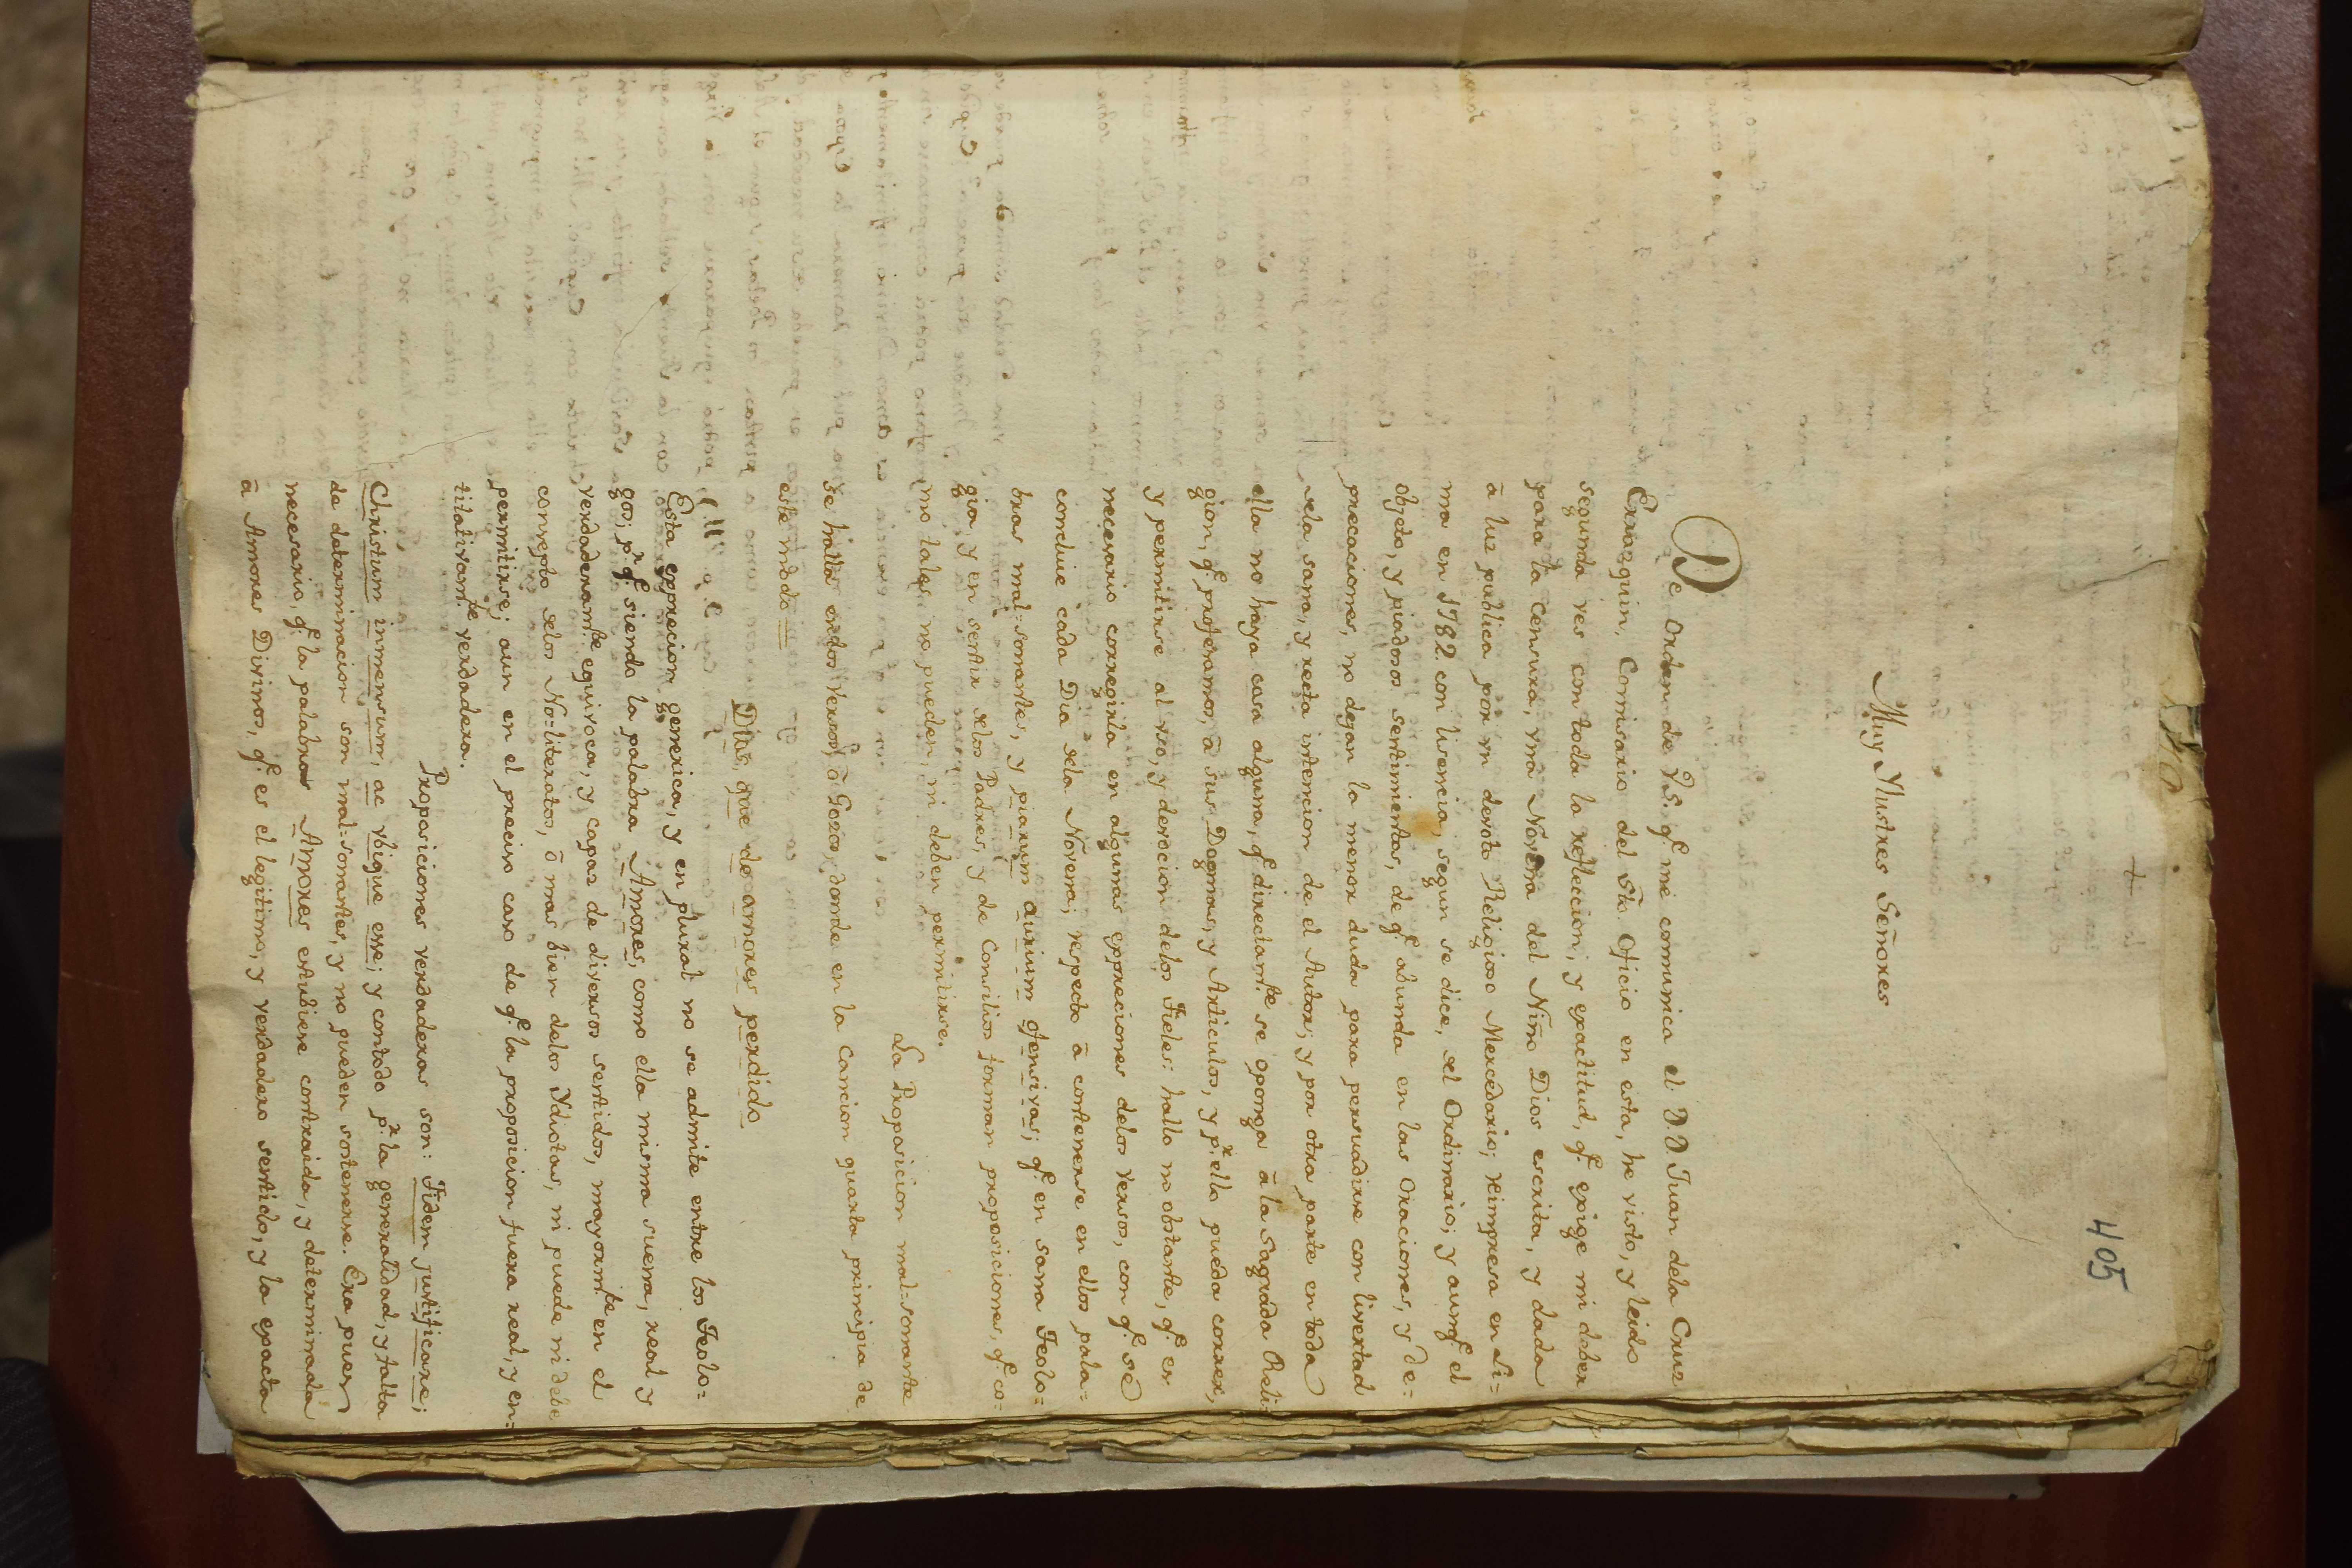 405
Muy Ylustres Señores
De Orden de V.S. q.e me comunica el D.D Juan dela Cruz
Errazquin, Comisario del S.to Oficio en esta, he visto, y leido
segunda ves con toda la reflecion, y exactitud, q.e exige mi deber
para la Censura, una Novena del Niño Dios escrita, y dada
â luz publica por un devoto Religioso Mercedario; reimpresa en Li=
ma en 1782 con lisencia, segun se dice, del Ordinario; y aunq.e el
objeto, y piadosos sentimientos, de q.e abunda en las Oraciones, y de=
precaciones, no dejan la menor duda para persuadirse con livertad
dela sana, y recta intencion de el Autor; y por otra parte en toda
ella no haya cosa alguna, q.e directam.te se oponga â la Sagrada Reli=
gion, q.e profesamos, â sus Dogmas, y Articulos, y p.r ello pueda correr,
y permitirse al uso, y devocion delos Fieles: hallo no obstante, q.e es
necesario corregirla en algunas expreciones delos versos, con q.e sè
concluie cada Dia dela Novena; respecto â contenerse en ellos pala=
bras mal=sonantes, y piarum aurium ofensivas; q.e en sana Teolo=
gia, y en sentir delos Padres, y de Consilios forman proposiciones, q.e co=
mo tales no pueden, ni deben permitirse.
La Proposicion mal-sonante
se halla endos Versos, ô Gozos, donde en la Cancion quarta principia de
este modo =
Dias, que de amores perdido
Esta exprecion generica, y en plural no se admite entre los Teolo=
gos; p.r q.e siendo la palabra Amores, como ella misma suena, real y
verdaderam.te equivoca, y capaz de diversos sentidos, mayorm.te en el
consepto delos No=literatos, ô mas bien delos Ydiotas, ni puede ni debe
permitirse; aun en el preciso caso de q.e la proposicion fuera real, y en=
titativam.te verdadera.
Proposiciones verdaderas son: Fidem justificare;
Christum inmensum, ac ubique esse; y contodo p.r la generalidad, y falta
de determinacion son mal=sonantes, y no pueden sostenerse. Era pues
necesario, q.e la palabra Amores estubiese contraida, y determinada
â Amores Divinos, q.e es el legitimo, y verdadero sentido, y la exacta